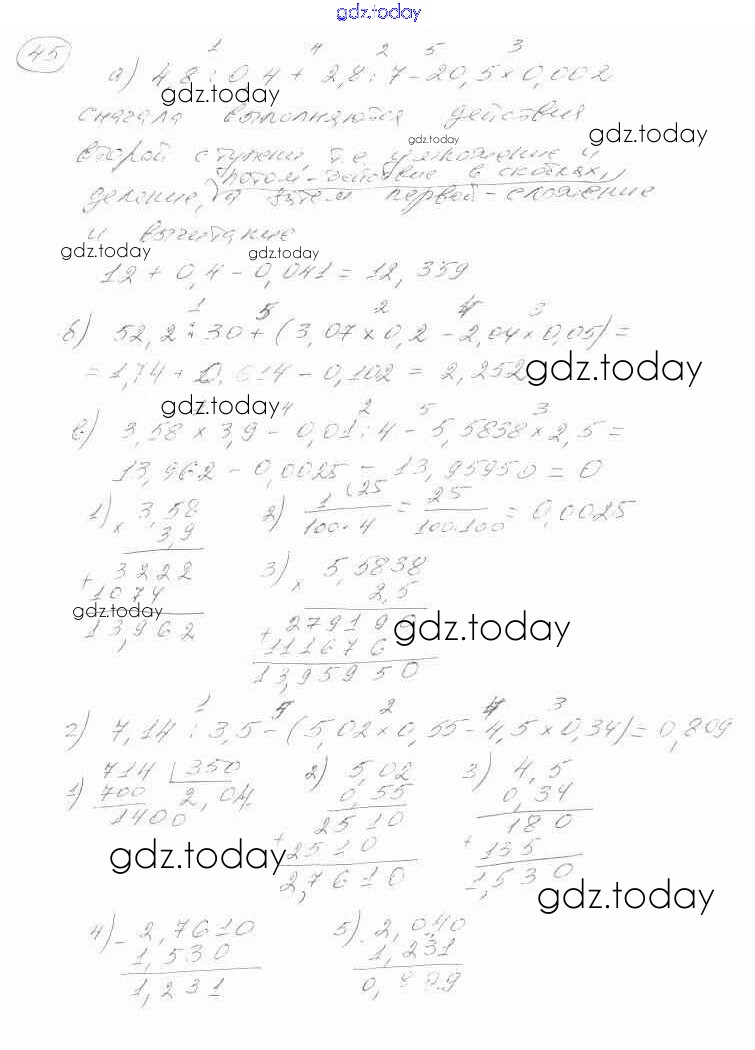 gdz.today
45
1 4 2 5 3
а) 4,8 : 0,4 + 2,8 : 7 - 20,5 × 0,002
gdz.today
сначала выполняются действия
gdz.today
gdz.today
второй ступени т.е умножение и
потом - действие в скобках,
деление, а затем первой - сложение
и вычитание
gdz.today
gdz.today
12 + 0,4 - 0,041 = 12,359
1 5 2 4 3
б) 52,2 : 30 + (3,07 × 0,2 - 2,04 × 0,05) =
= 1,74 + 0,614 - 0,102 = 2,252
gdz.today
gdz.today
4 2 5 3
в) 3,58 × 3,9 - 0,01 : 4 - 5,5838 × 2,5 =
13,962 - 0,0025 - 13,95950 = 0
1) 3,58
× 3,9
3222
+ 1074
13,962
gdz.today
2) 1 (25 / 100·4 = 25 / 100·100 = 0,0025
3) 5,5838
× 2,5
279190
+ 111676
13,95950
gdz.today
1 5 2 4 3
г) 7,14 : 3,5 - (5,02 × 0,55 - 4,5 × 0,34) = 0,809
1) 714 | 350
700 2,04
1400
2) 5,02
0,55
2510
+ 2510
2,7610
3) 4,5
0,34
180
+ 135
1,530
gdz.today
gdz.today
4) - 2,7610
1,530
1,231
5) - 2,040
1,231
0,809